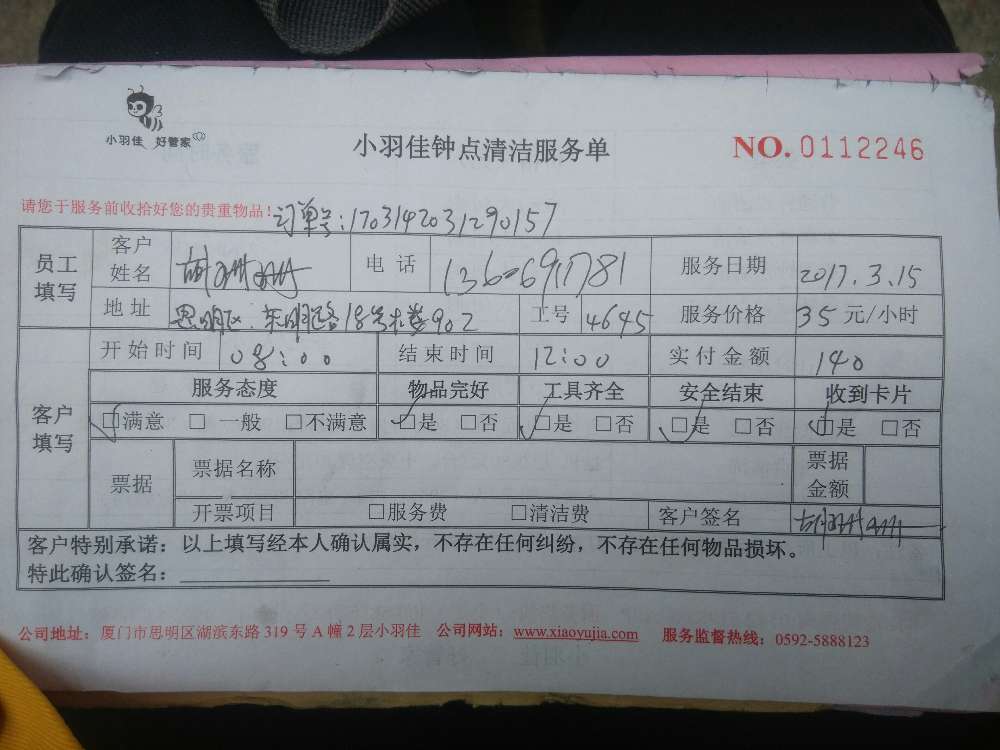 小羽佳 好管家
小羽佳钟点清洁服务单
NO. 0112246
请您于服务前收拾好您的贵重物品!订单号:1703142031290157
员工填写 客户姓名 电话 服务日期 2017.3.15
地址 思明区 东明路18号 902 工号 4645 服务价格 35 元/小时
开始时间 08:00 结束时间 12:00 实付金额 140
客户填写 服务态度 物品完好 工具齐全 安全结束 收到卡片
☑满意 □ 一般 □不满意 ☑是 □否 ☑是 □否 ☑是 □否 ☑是 □否
票据 票据名称 票据金额
开票项目 □服务费 □清洁费 客户签名
客户特别承诺:以上填写经本人确认属实,不存在任何纠纷,不存在任何物品损坏。
特此确认签名:
公司地址:厦门市思明区湖滨东路 319 号 A 幢 2 层小羽佳 公司网站:www.xiaoyujia.com 服务监督热线:0592-5888123